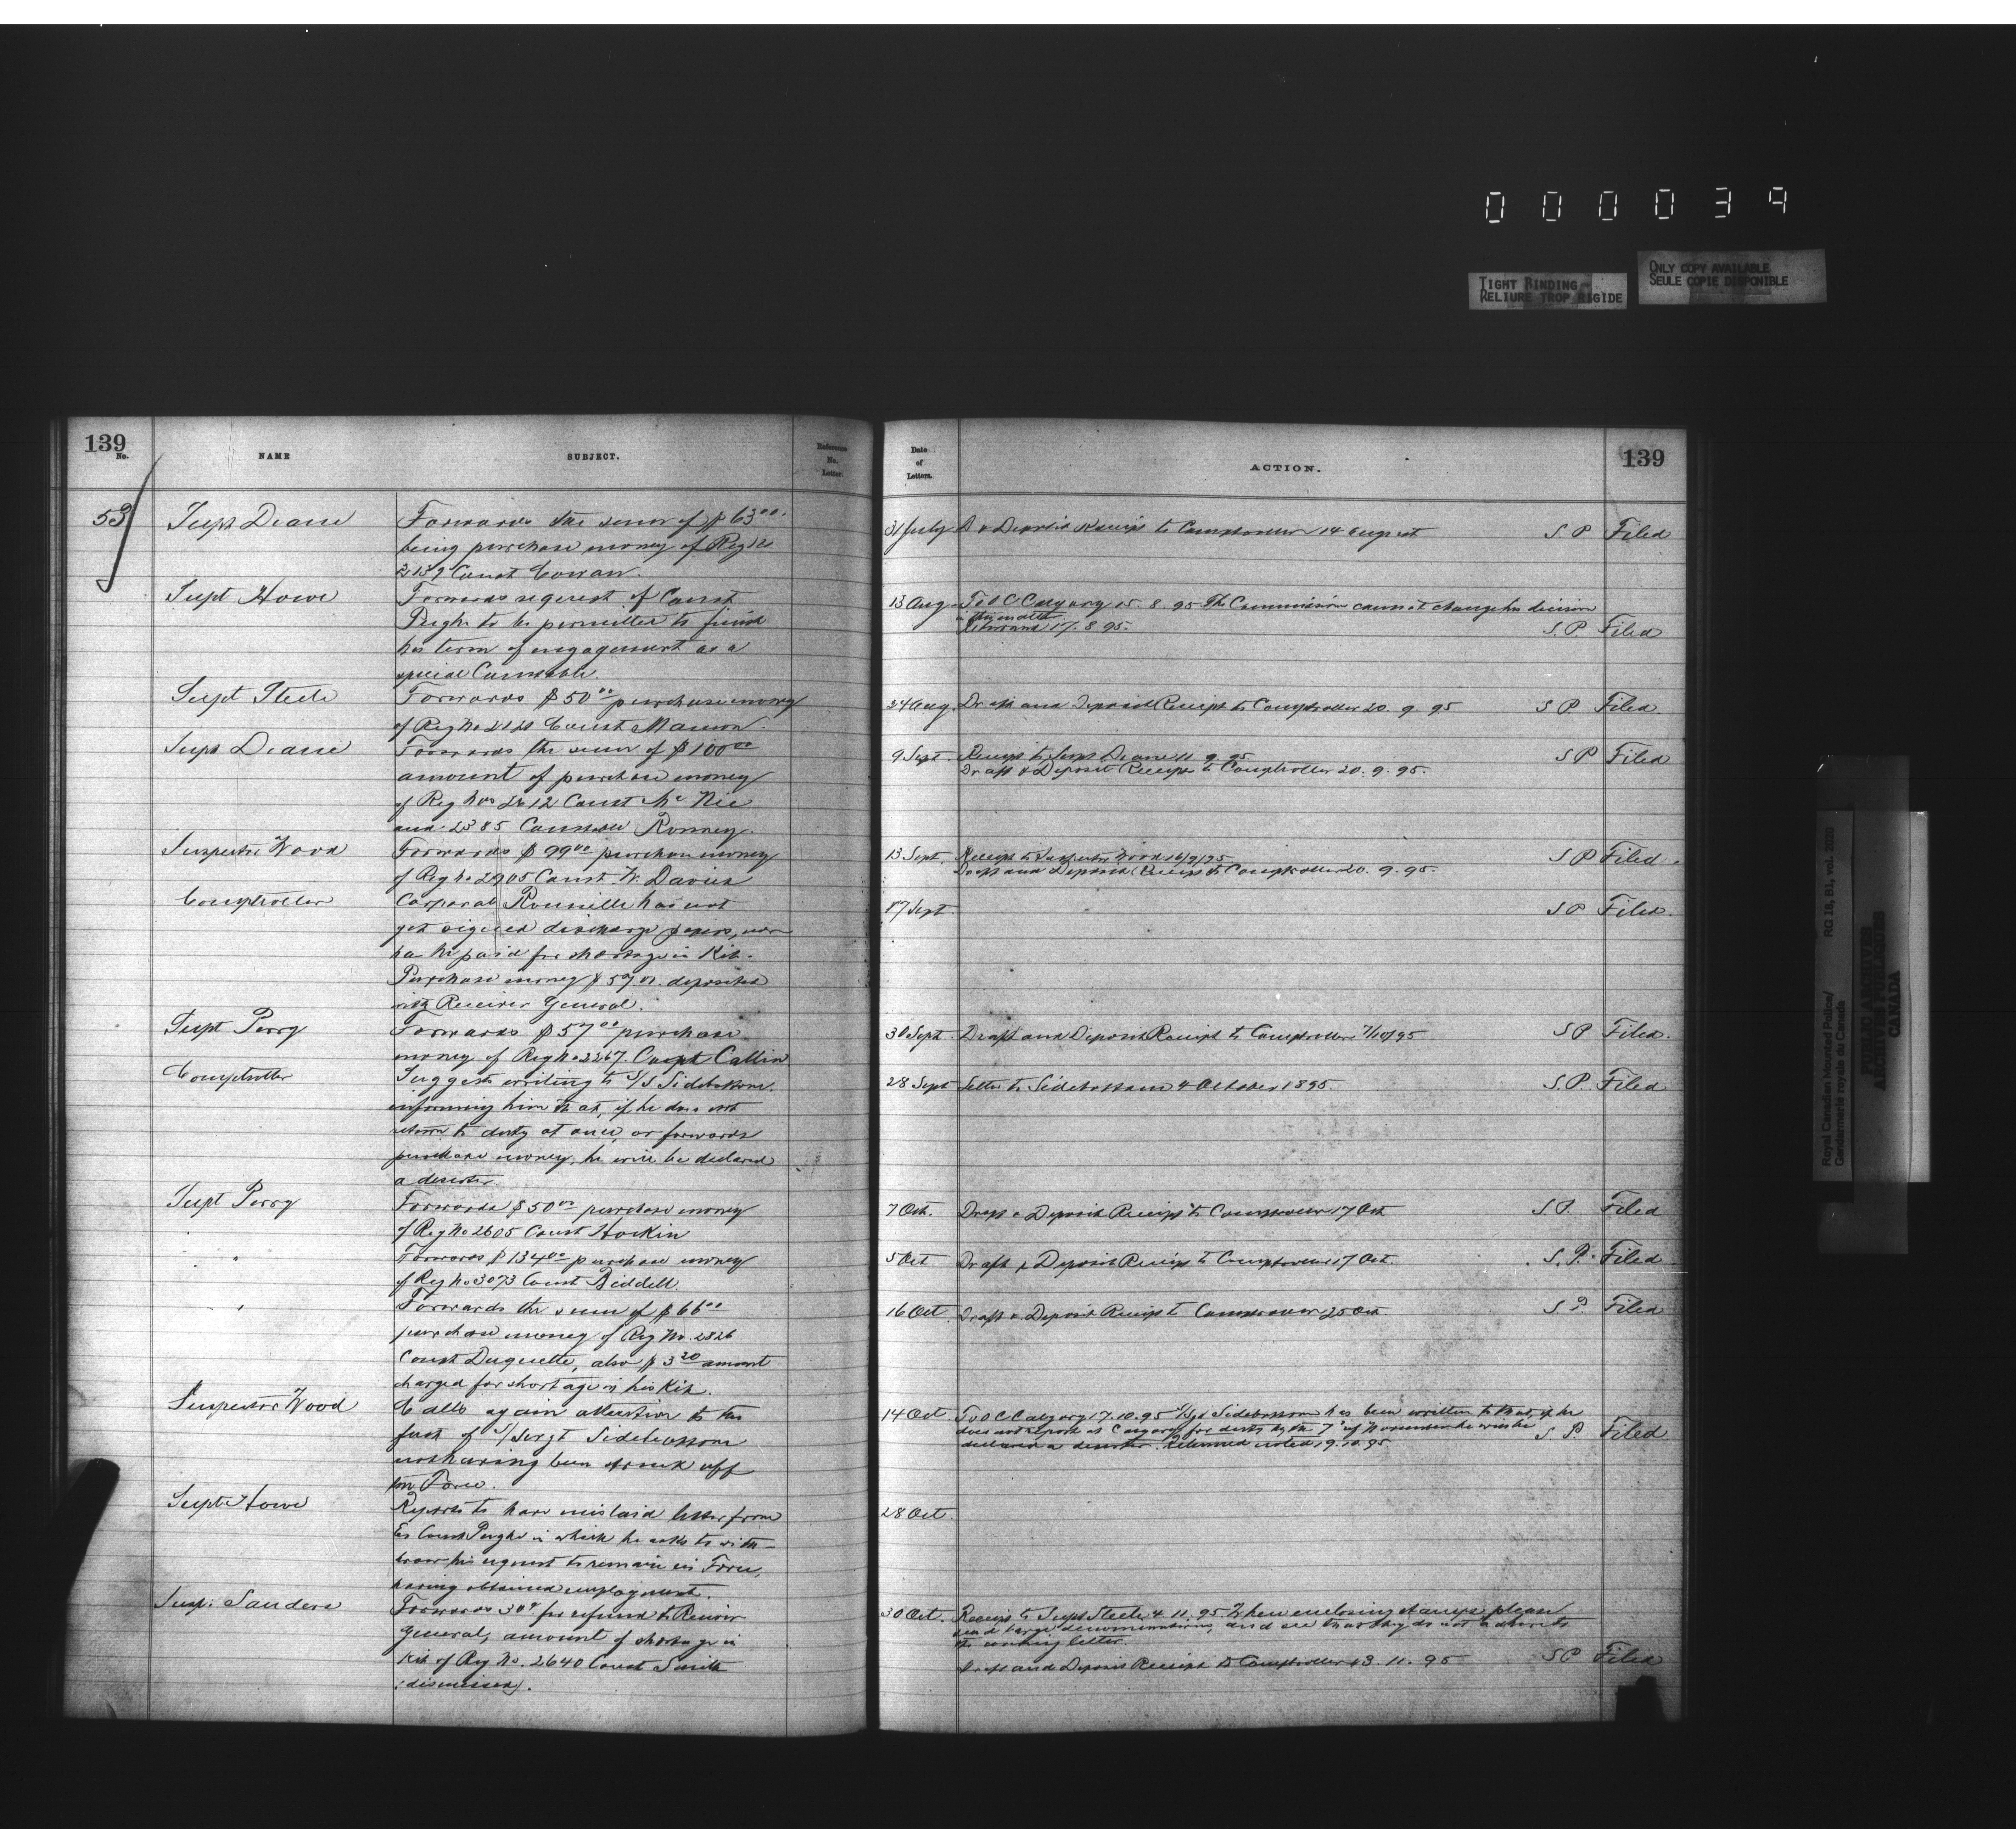 000039
TIGHT BINDING
RELIURE TROP RIGIDE
ONLY COPY AVAILABLE
SEULE COPIE DISPONIBLE
139
No.
NAME
SUBJECT.
Reference
No.
Letter.
Date
of
Letters.
ACTION.
139
53
Supt Deane
Forwards the sum of $63.00
being purchase money of Reg No
2139 Const Cowan.
31 July
Deposit Receipt to Comptroller 14 August
S P Filed
Supt Howe
Forwards request of Const
to be permitted to finish
his term of engagement as a
special Constable.
13 Aug
To O C Calgary 15. 8. 95 The Commissioner cannot change his decision
in this matter
Returned 17. 8. 95.
S. P. Filed
Supt Steele
Forwards $50.00 purchase money
of Reg No Const
24 Aug.
Draft and Deposit Receipt to Comptroller 20. 9. 95
S P. Filed.
Supt Deane
Forwards the sum of $100.00
amount of purchase money
of Reg Nos 2612 Const Mc Nie
and 2385 Constable Ronney.
9 Sept.
Receipt to Supt Deane 11. 9. 95
Draft & Deposit Receipt to Comptroller 20. 9. 95.
S P Filed
Inspector Wood
Forwards $99.00 purchase money
of Reg No 2905 Const. W. Davies
13 Sept.
Receipt to Inspector Wood 16/9/95
Draft and Deposit Receipt to Comptroller 20. 9. 95.
S P Filed.
Comptroller
Corporal has not
yet signed discharge papers, nor
has he paid for shortage in Kit.
Purchase money deposited
with Receiver General.
17 Sept
S P Filed.
Supt Perry
Forwards $57.00 purchase
money of Reg No 2267.
30 Sept.
Draft and Deposit Receipt to Comptroller 7/10/95
S P Filed.
Comptroller
Suggests writing to S/S Sidebottom
informing him that, if he does not
return to duty at once, or forwards
purchase money, he will be declared
a deserter.
28 Sept
Letter to Sidebottom 4 October 1895
S. P. Filed
Supt Perry
Forwards $50.00 purchase money
of Reg No 2605 Const Hockin
7 Oct.
Draft & Deposit Receipt to Comptroller 17 Oct
S P. Filed
"
Forwards $134.00 purchase money
of Reg No 3073 Const Biddell.
5 Oct
Draft & Deposit Receipt to Comptroller 17 Oct.
S. P. Filed
"
Forwards the sum of $66.00
purchase money of Reg No. 2826
Const Duquette, also $3.20 amount
charged for shortage in his Kit.
16 Oct.
Draft & Deposit Receipt to Comptroller 25 Oct
S P. Filed
Inspector Wood
Calls again attention to the
fact of S/Sergt Sidebottom
not having been struck off
the Force.
14 Oct
To O C Calgary 17. 10. 95 S/Sgt Sidebottom has been written to that, if he
does not report at Calgary for duty by the 7th of November he will be
declared a deserter. Returned noted 19. 10. 95
S. P. Filed
Supt Howe
Reports to have mislaid letter from
Ex Const in which he asks to with-
draw his request to remain in Force,
having obtained employment.
28 Oct.
Insp. Sanders
Forwards 30c for refund to Receiver
General, amount of shortage in
Kit of Reg No. 2640 Const Smith
(dismissed).
30 Oct.
Receipt to Supt Steele 4. 11. 95 When enclosing stamps please
send large denominations, and see that they do not adhere to
the covering letter.
Draft and Deposit Receipt to Comptroller 13. 11. 95
S P Filed
Royal Canadian Mounted Police/
Gendarmerie royale du Canada
RG 18, B1, vol. 2030
PUBLIC ARCHIVES
ARCHIVES PUBLIQUES
CANADA